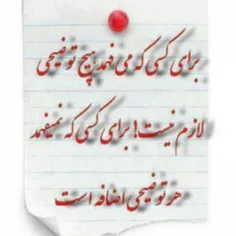 برای کسی که می فهمد هیچ توضیحی
لازم نیست! برای کسی که نمیفهمد
هر توضیحی اضافه است